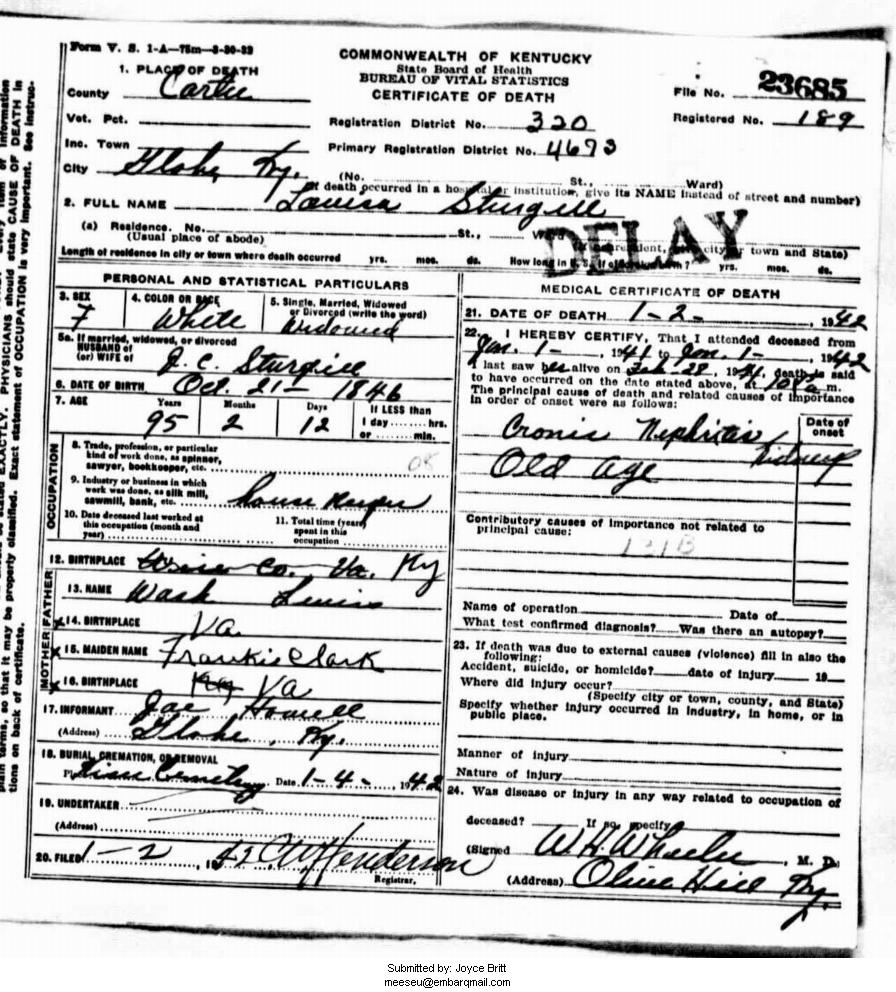 Form V. S. 1-A—75m—3-30-33
COMMONWEALTH OF KENTUCKY
State Board of Health
BUREAU OF VITAL STATISTICS
CERTIFICATE OF DEATH
File No. 23685
Registered No. 189
1. PLACE OF DEATH
County Carter
Vot. Pct.
Registration District No. 320
Inc. Town
Primary Registration District No. 4673
City Globe Ky.
(No. St., Ward)
(If death occurred in a hospital or institution, give its NAME instead of street and number)
2. FULL NAME Louisa Sturgill
(a) Residence. No. St.,
(Usual place of abode)
town and State)
DELAY
Length of residence in city or town where death occurred yrs. mos. ds. How long in yrs. mos. ds.
PERSONAL AND STATISTICAL PARTICULARS
3. SEX
F
4. COLOR OR RACE
White
5. Single, Married, Widowed
or Divorced (write the word)
Widowed
5a. If married, widowed, or divorced
HUSBAND of
(or) WIFE of J. C. Sturgill
6. DATE OF BIRTH Oct. 21- 1846
7. AGE Years Months Days If LESS than
95 2 12 1 day hrs.
or min.
OCCUPATION
8. Trade, profession, or particular
kind of work done, as spinner,
sawyer, bookkeeper, etc. 08
9. Industry or business in which
work was done, as silk mill,
sawmill, bank, etc. house keeper
10. Date deceased last worked at
this occupation (month and
year)
11. Total time (years)
spent in this
occupation
12. BIRTHPLACE Wise Co. Va. Ky
FATHER
13. NAME Wash Lewis
14. BIRTHPLACE Va
MOTHER
15. MAIDEN NAME Frankie Clark
16. BIRTHPLACE Ky Va
17. INFORMANT Joe Howell
(Address) Globe, Ky.
18. BURIAL, CREMATION, OR REMOVAL
Cemetery Date 1-4-, 1942
19. UNDERTAKER
(Address)
20. FILED 1-2, 1942 Henderson
Registrar.
MEDICAL CERTIFICATE OF DEATH
21. DATE OF DEATH 1-2-, 1942
22. I HEREBY CERTIFY, That I attended deceased from
Jan. 1-, 1941 to Jan. 1-, 1942
I last saw her alive on Feb-28, 1941, death is said
to have occurred on the date stated above, at m.
The principal cause of death and related causes of importance
in order of onset were as follows:
Date of
onset
Cronic Nephritis
Kidneys
Old age
Contributory causes of importance not related to
principal cause:
131B
Name of operation Date of
What test confirmed diagnosis? Was there an autopsy?
23. If death was due to external causes (violence) fill in also the
following:
Accident, suicide, or homicide? date of injury 19
Where did injury occur?
(Specify city or town, county, and State)
Specify whether injury occurred in industry, in home, or in
public place.
Manner of injury
Nature of injury
24. Was disease or injury in any way related to occupation of
deceased? If so, specify
(Signed W. H. Wheeler, M. D.
(Address) Olive Hill Ky.
PHYSICIANS should state CAUSE OF DEATH in
plain terms, so that it may be properly classified. Exact statement of OCCUPATION is very important. See instruc-
tions on back of certificate.
Submitted by: Joyce Britt
meeseu@embarqmail.com